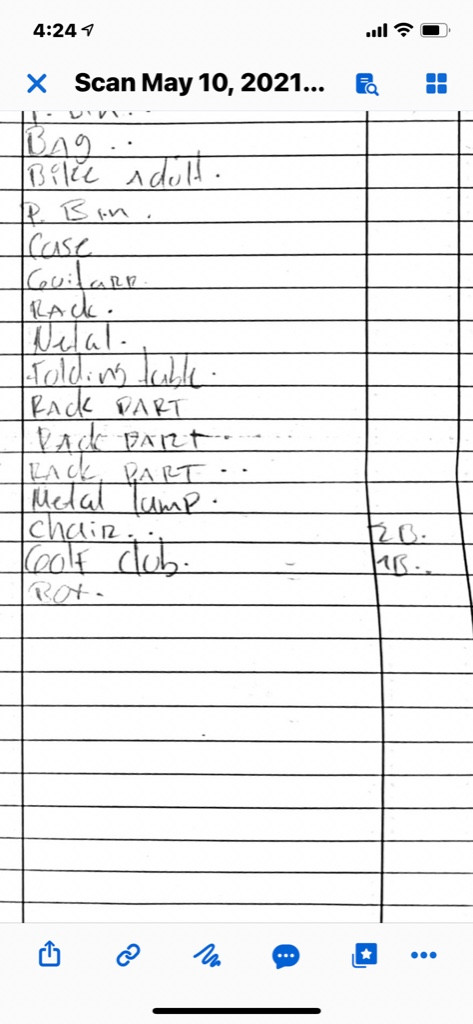 4:24
Scan May 10, 2021...
P. Bin..
Bag ..
Bike adult.
P. Bin.
Case
Guitarr.
RAck.
Netal.
Folding table.
RAck PART
RAck PART
RAck PART ..
Metal lamp.
chair... 2B.
Golf club. 1B..
Box.